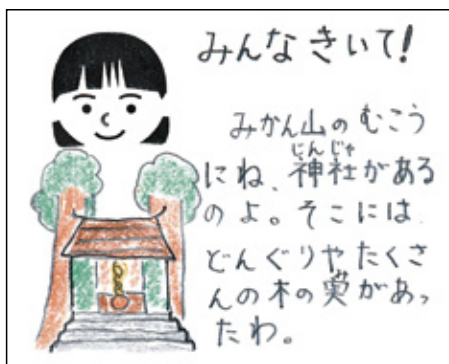 みんなきいて!
みかん山のむこう
じんじゃ
にね、神社がある
のよ。そこには
どんぐりやたくさ
んの木の実があっ
たわ。